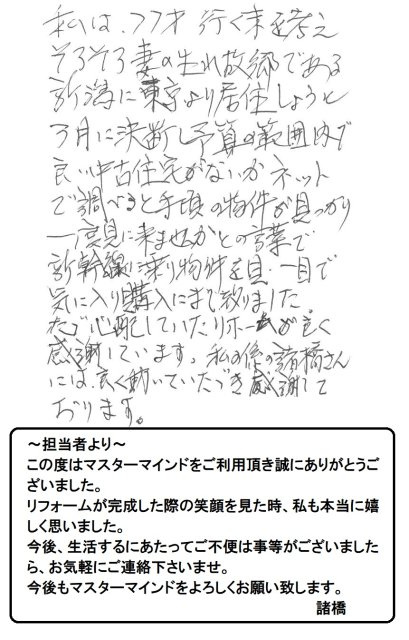 私は、77才 行く末を考え
そろそろ妻の生れ故郷である
新潟に東京より居住しようと
3月に決断し予算の範囲内で
良い中古住宅がないかネット
で調べると手頃の物件が見つかり
一度見に来ませんかとの言葉で
新幹線に乗り物件を見、一目で
気に入り購入にまで致りました
ただ心配していたリホームが良く
感謝しています。私の係の諸橋さん
には、良く動いていただき感謝して
おります。
～担当者より～
この度はマスターマインドをご利用頂き誠にありがとうご
ざいました。
リフォームが完成した際の笑顔を見た時、私も本当に嬉
しく思いました。
今後、生活するにあたってご不便は事等がございました
ら、お気軽にご連絡下さいませ。
今後もマスターマインドをよろしくお願い致します。
諸橋